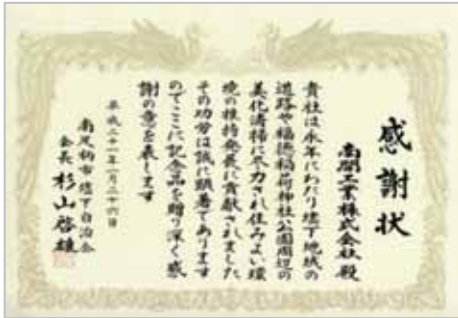 感謝状
南開工業株式会社殿
貴社は永年にわたり塘下地域の
道路や福徳稲荷神社公園周辺の
美化清掃に尽力され住みよい環
境の維持発展に貢献されました
その功労は誠に顕著であります
のでここに記念品を贈り深く感
謝の意を表します
平成二十一年一月二十六日
南足柄市塘下自治会
会長 杉山啓雄